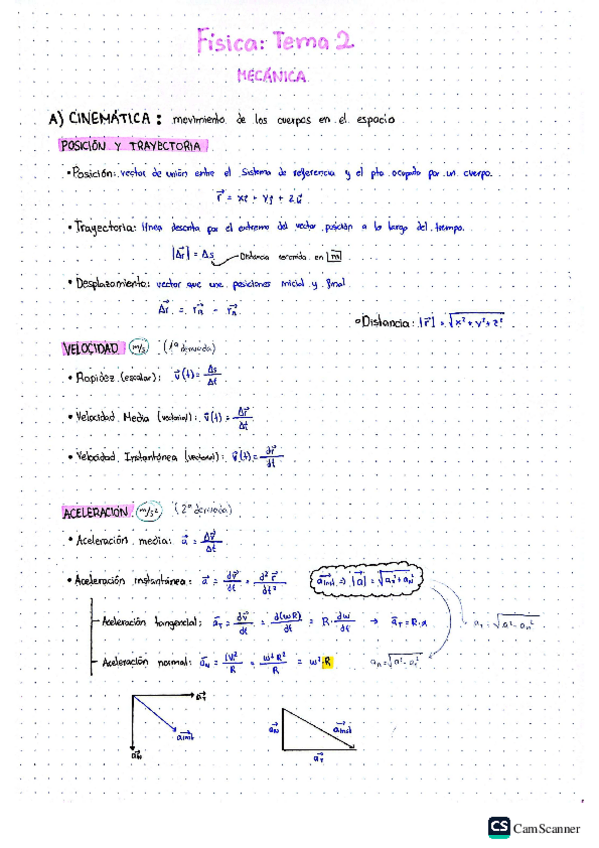 Física: Tema 2
MECÁNICA
A) CINEMÁTICA: movimiento de los cuerpos en el espacio
POSICIÓN Y TRAYECTORIA
• Posición: vector de unión entre el sistema de referencia y el pto ocupado por un cuerpo.
r⃗ = x i + y j + z k
• Trayectoria: línea descrita por el extremo del vector posición a lo largo del tiempo.
|Δr⃗| = Δs Distancia recorrida en m
• Desplazamiento: vector que une posiciones inicial y final
Δr⃗ =
• Distancia: |r⃗| = √x² + y² + z²
VELOCIDAD m/s (1ª derivada)
• Rapidez (escalar): v⃗(t) = Δs/Δt
• Velocidad Media (vectorial): v⃗(t) = Δr⃗/Δt
• Velocidad Instantánea (vectorial): v⃗(t) = dr⃗/dt
ACELERACIÓN m/s² (2ª derivada)
• Aceleración media: a⃗ = Δv⃗/Δt
• Aceleración instantánea: a⃗ = dv⃗/dt = d²r⃗/dt²
a⃗inst ⇒ |a⃗| =
Aceleración tangencial: a⃗T = dv⃗/dt = d(wR)/dt = R · dw/dt → a⃗T = R·α
aT = √a² - aN²
Aceleración normal: a⃗N = |v|²/R = w²R²/R = w²·R
aN = √a² - aT²
a⃗T
a⃗inst
a⃗N
a⃗N
a⃗inst
a⃗T
CS CamScanner